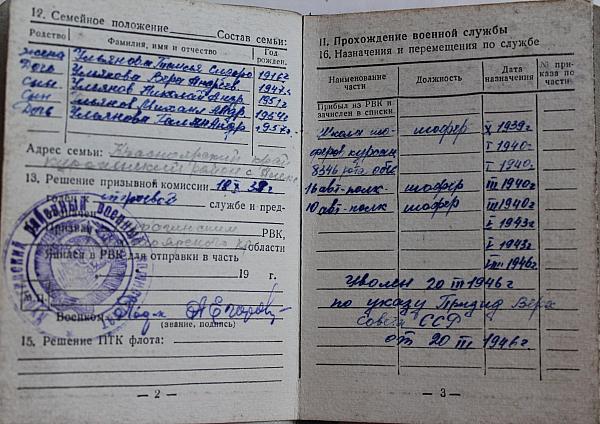 12. Семейное положение
Состав семьи:
Родство
Фамилия, имя и отчество
Год рожден.
жена Ульянова 1916 г
Дочь Ульянова Вера Андреев. 1947 г.
Сын Ульянов Николай Андр 1951 г
Сын Михаил Андр 1954 г
Дочь Ульянова Андр 1957 г.
Адрес семьи: Красноярский край
район с
13. Решение призывной комиссии
Годен к строевой службе и пред-
Призван РВК,
области
Явился в РВК для отправки в часть
19 г.
М.П.
Военком
(звание, подпись)
15. Решение ПТК флота:
— 2 —
II. Прохождение военной службы
16. Назначения и перемещения по службе
Наименование части
Должность
Дата назначения
№ при-каза по части
Прибыл из РВК и зачислен в списки
Школа шо- шофер X 1939 г.
феров курсан I 1940 г.
8346 I 1940 г.
16 авт-полк шофер III 1940 г
10 авт-полк шофер III 1940 г
V 1943 г
I 1943 г
III 1946 г
Уволен 20 III 1946 г
по указу Презид Верх
Совета СССР
от 20 III 1946 г.
— 3 —